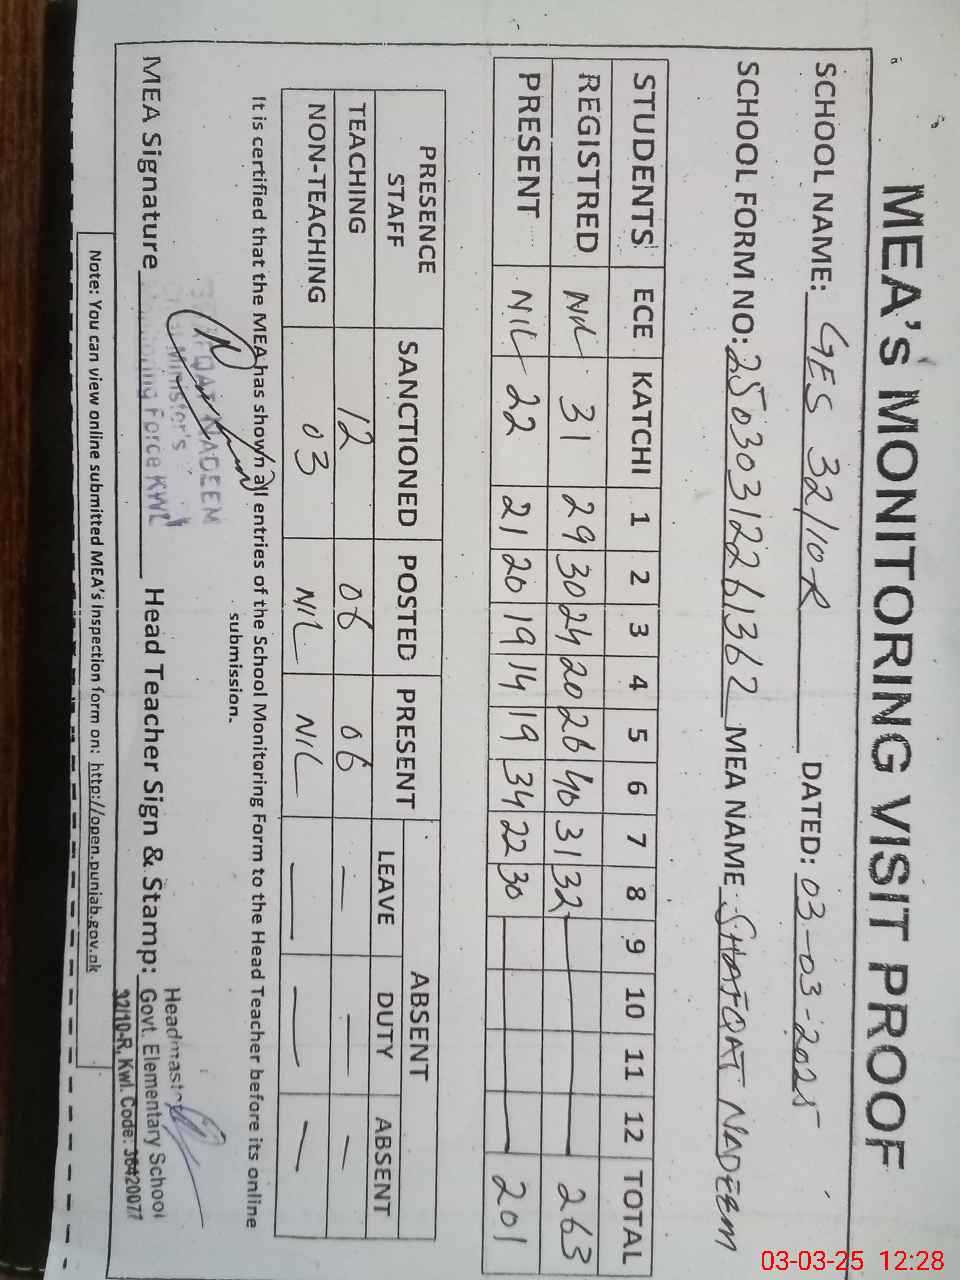 MEA's MONITORING VISIT PROOF
SCHOOL NAME: GES 32/10R DATED: 03-03-2025
SCHOOL FORM NO: 25030312261362 MEA NAME SHAFQAT NADEEM
STUDENTS ECE KATCHI 1 2 3 4 5 6 7 8 9 10 11 12 TOTAL
REGISTRED NIL 31 29 30 24 20 26 40 31 32 263
PRESENT NIL 22 21 20 19 14 19 34 22 30 201
PRESENCE STAFF SANCTIONED POSTED PRESENT ABSENT
LEAVE DUTY ABSENT
TEACHING 12 06 06 — — —
NON-TEACHING 03 NIL NIL — — —
It is certified that the MEA has shown all entries of the School Monitoring Form to the Head Teacher before its online
submission.
SHAFQAT NADEEM
Minister's
Monitoring Force KWL
MEA Signature Head Teacher Sign & Stamp:
Headmaster
Govt. Elementary School
32/10-R, Kwl. Code: 36420077
Note: You can view online submitted MEA's Inspection form on: http://open.punjab.gov.pk
03-03-25 12:28